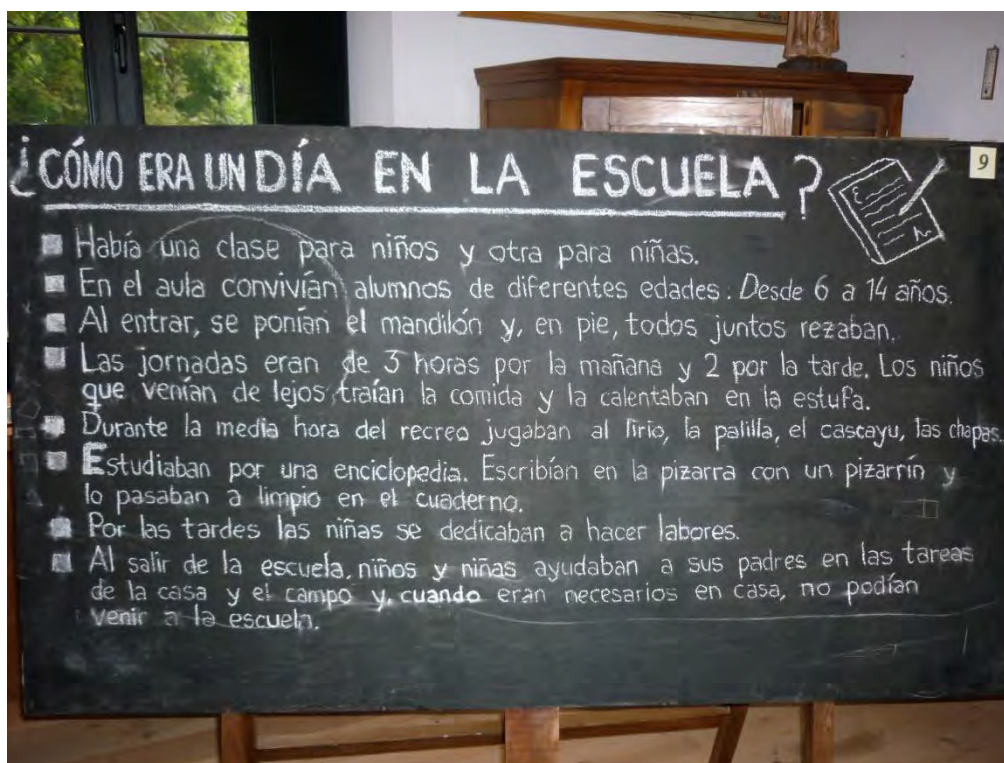 ¿CÓMO ERA UN DÍA EN LA ESCUELA?
9
Había una clase para niños y otra para niñas.
En el aula convivían alumnos de diferentes edades. Desde 6 a 14 años.
Al entrar, se ponían el mandilón y, en pie, todos juntos rezaban.
Las jornadas eran de 3 horas por la mañana y 2 por la tarde. Los niños
que venían de lejos, traían la comida y la calentaban en la estufa.
Durante la media hora del recreo jugaban al lirio, la palilla, el cascayu, las chapas.
Estudiaban por una enciclopedia. Escribían en la pizarra con un pizarrín y
lo pasaban a limpio en el cuaderno.
Por las tardes las niñas se dedicaban a hacer labores.
Al salir de la escuela, niños y niñas ayudaban a sus padres en las tareas
de la casa y el campo y, cuando eran necesarios en casa, no podían
venir a la escuela.